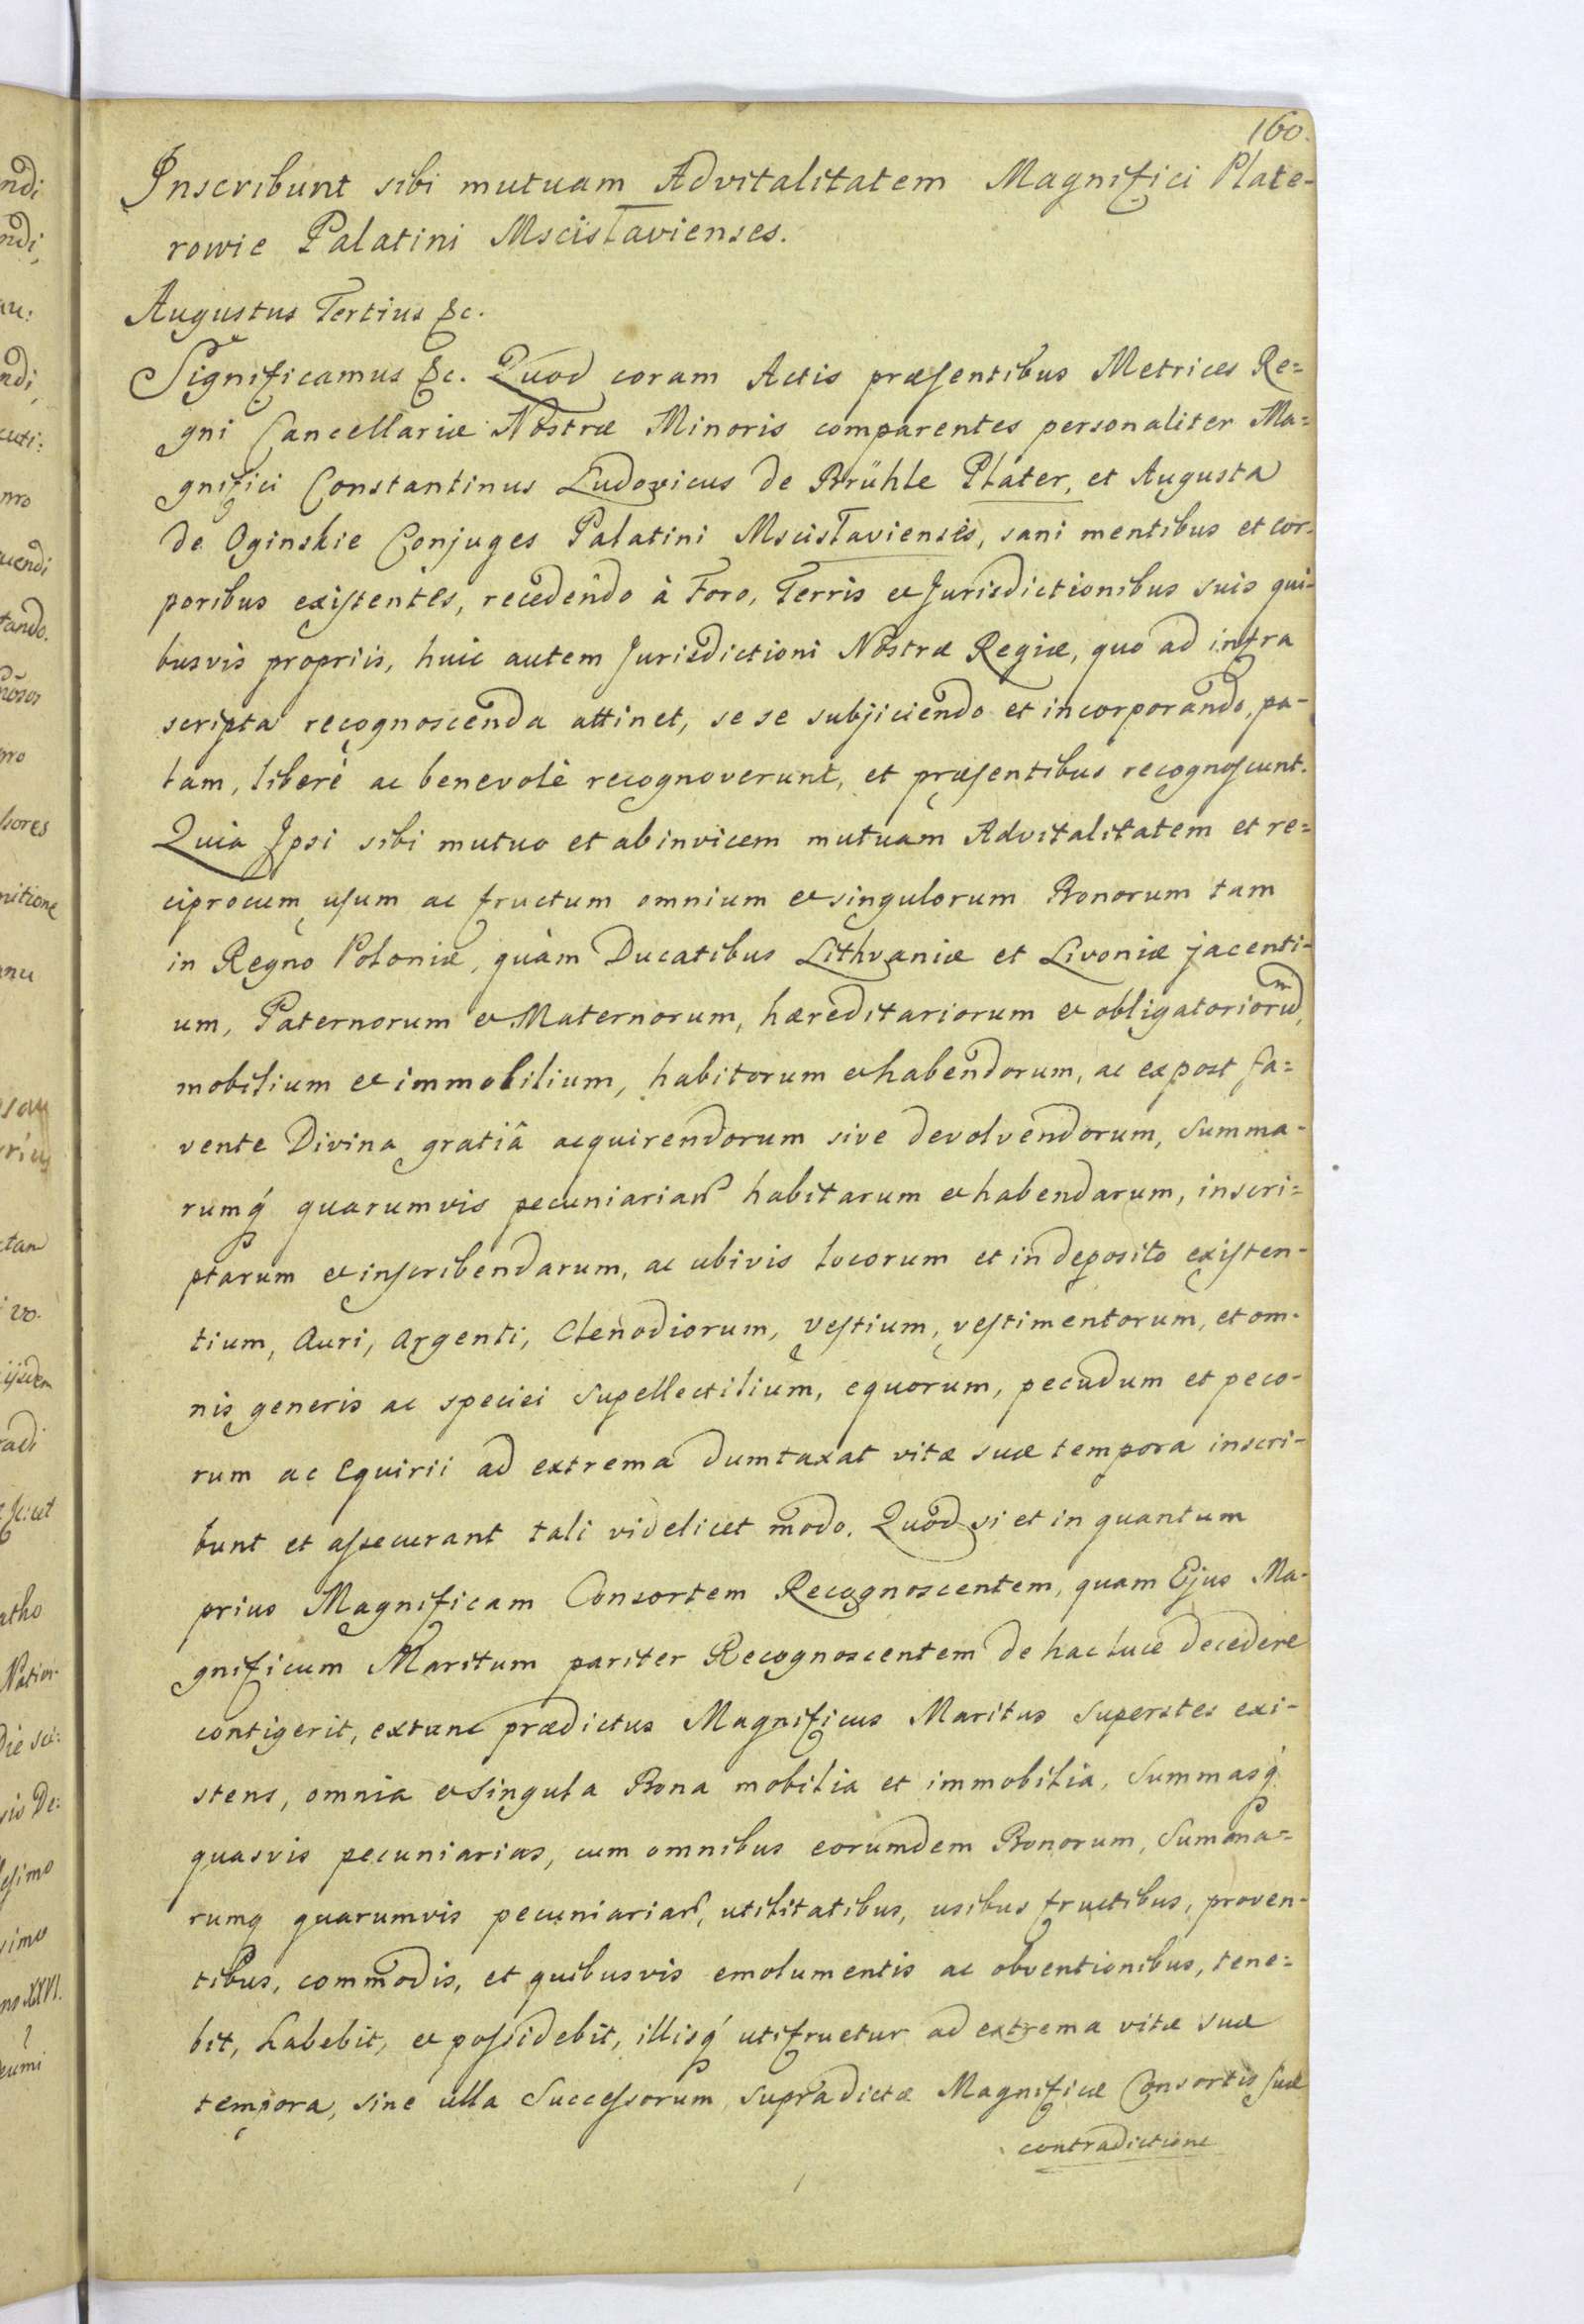 160.
Inscribunt sibi mutuam Advitalitatem Magnifici Plate-
rowie Palatini Mscisłavienses.
Augustus Tertius &c.
Significamus &c. Quod coram Actis præsentibus Metrices Re=
gni Cancellariæ Nostræ Minoris comparentes personaliter Ma=
gnifici Constantinus Ludovicus de Brühle Plater, et Augusta
de Oginskie Conjuges Palatini Mscisłaviensès, sani mentibus et cor-
poribus existentes, recedendo à Foro, Terris et Jurisdictionibus suis qui-
busvis propriis, huic autem Jurisdictioni Nostræ Regiæ, quo ad infra
scripta recognoscenda attinet, se se subjiciendo et incorporando, pa-
lam, liberè ac benevolè recognoverunt, et præsentibus recognoscunt.
Quia Ipsi sibi mutuo et abinvicem mutuam Advitalitatem et re=
ciprocum usum ac fructum omnium et singulorum Bonorum tam
in Regno Poloniæ, quàm Ducatibus Lithvaniæ et Livoniæ jacenti-
um, Paternorum et Maternorum, hæreditariorum et obligatoriorum,
mobilium et immobilium, habitorum et habendorum, ac ex post fa=
vente Divina gratiâ acquirendorum sive devolvendorum, Summa-
rumq́ quarumvis pecuniariarũ habitarum et habendarum, inscri=
ptarum et inscribendarum, ac ubivis locorum et in deposito existen-
tium, Auri, Argenti, Clenodiorum, Vestium, vestimentorum, et om-
nis generis ac speciei Supellectilium, equorum, pecudum et peco-
rum ac Equirii ad extrema dumtaxat vitæ suæ tempora inscri-
bunt et assecurant tali videlicet modo. Quod si et in quantum
prius Magnificam Consortem Recognoscentem, quam Ejus Ma-
gnificum Maritum pariter Recognoscentem de hac luce decedere
contigerit, extunc prædictus Magnificus Maritus Superstes exi-
stens, omnia et Singula Bona mobilia et immobilia, Summasq́
quasvis pecuniarias, cum omnibus eorumdem Bonorum, Summa=
rumq quarumvis pecuniariarũ, utilitatibus, usibus fructibus, proven-
tibus, commodis, et quibusvis emolumentis ac obventionibus, tene=
bit, habebit, et possidebit, illisq́ utifruetur ad extrema vitæ suæ
tempora, sine ulla Successorum supradictæ Magnificæ Consortis suæ
contradictione